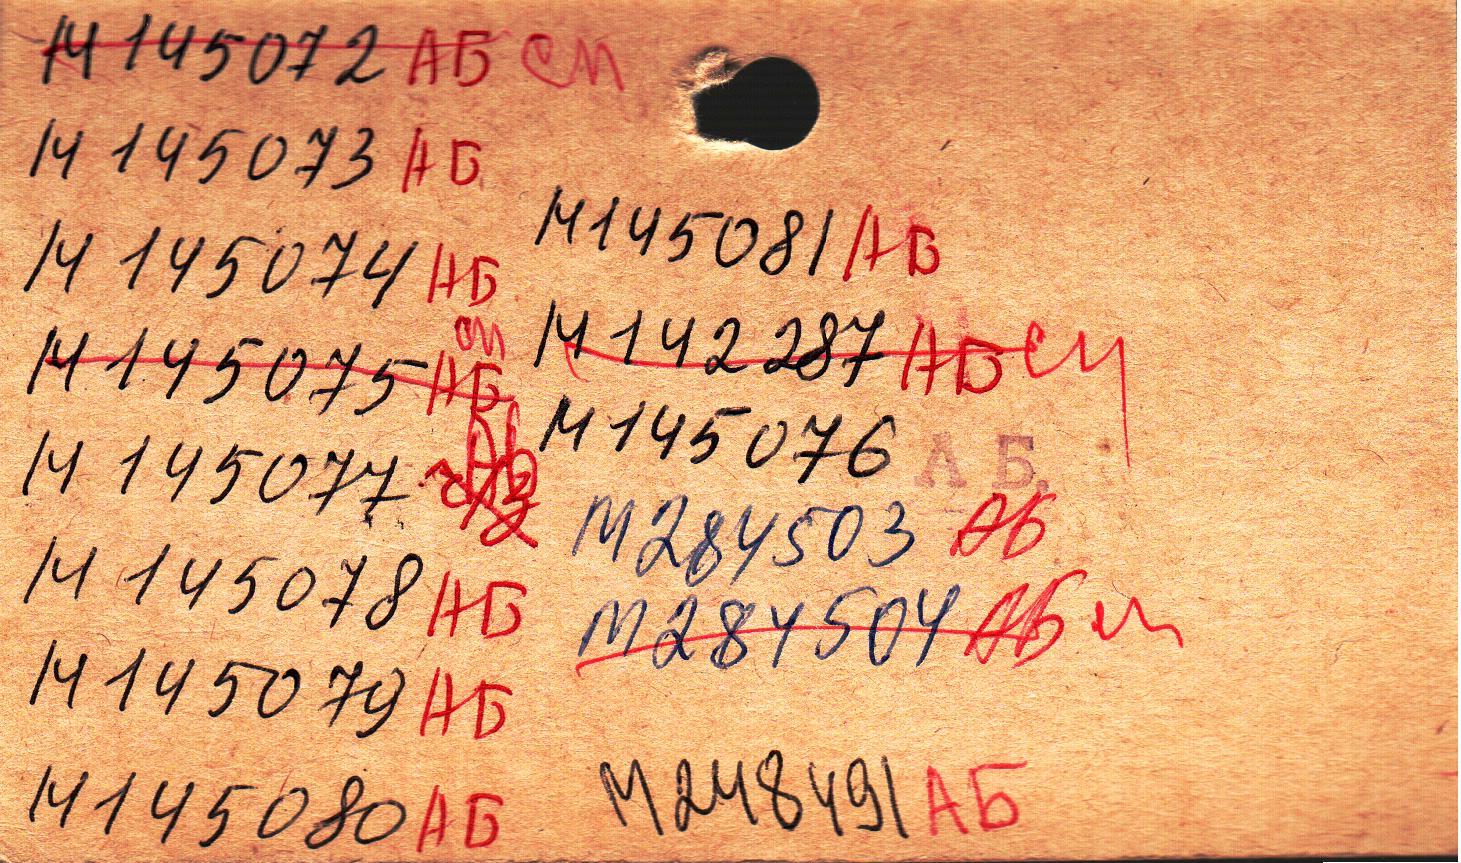 М 145072 АБ см
М 145073 АБ
М 145074 АБ
М 145075 АБ см
М 145077 АБ
М 145078 АБ
М 145079 АБ
М 145080 АБ
М 145081 АБ
М 142287 АБ см
М 145076 АБ.
М 284503 АБ
М 284504 АБ
М 248491 АБ